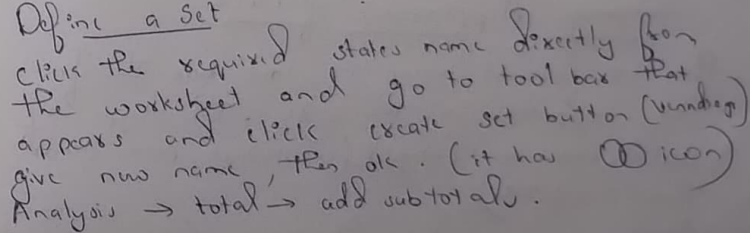 Define a set
click the required states name directly from
the worksheet and go to tool bar that
appears and click create set button (venndiag)
give new name, then ok. (it has icon)
Analysis → total → add subtotals.